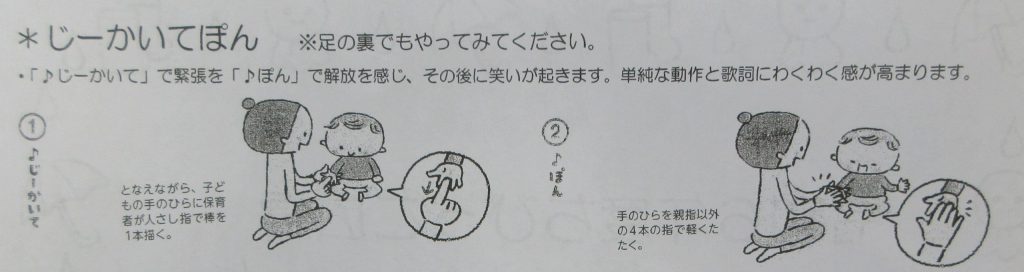 ＊じーかいてぽん　※足の裏でもやってみてください。
・「♪じーかいて」で緊張を「♪ぽん」で解放を感じ、その後に笑いが起きます。単純な動作と歌詞にわくわく感が高まります。
①
♪じーかいて
となえながら、子ど
もの手のひらに保育
者が人さし指で棒を
1本描く。
②
♪ぽん
手のひらを親指以外
の4本の指で軽くた
たく。